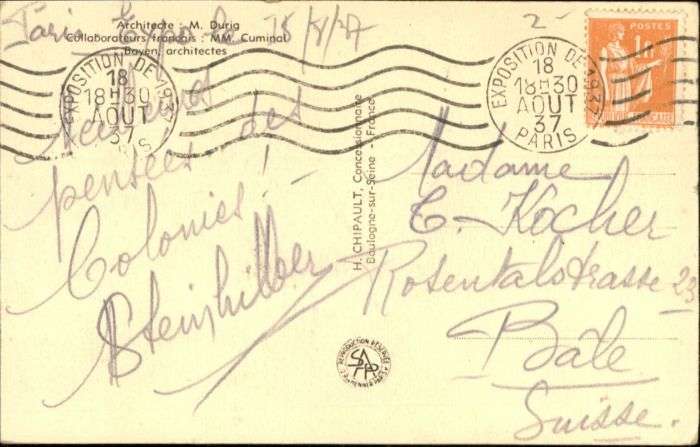 Architecte : M. Durig
Collaborateurs français : MM. Cuminal
Bayen, architectes
Paris, Expo le 18/8/37
pensées des
Colonies! -
Steinhilber
EXPOSITION DE 1937
18
18H30
AOUT
37
PARIS
H. CHIPAULT, Concessionnaire
Boulogne-sur-Seine - France
REPRODUCTION RÉSERVÉE
2
EXPOSITION DE 1937
18
18H30
AOUT
37
PARIS
POSTES
1F
Madame
C. Kocher
Rosentalstrasse 23
Bâle
Suisse.